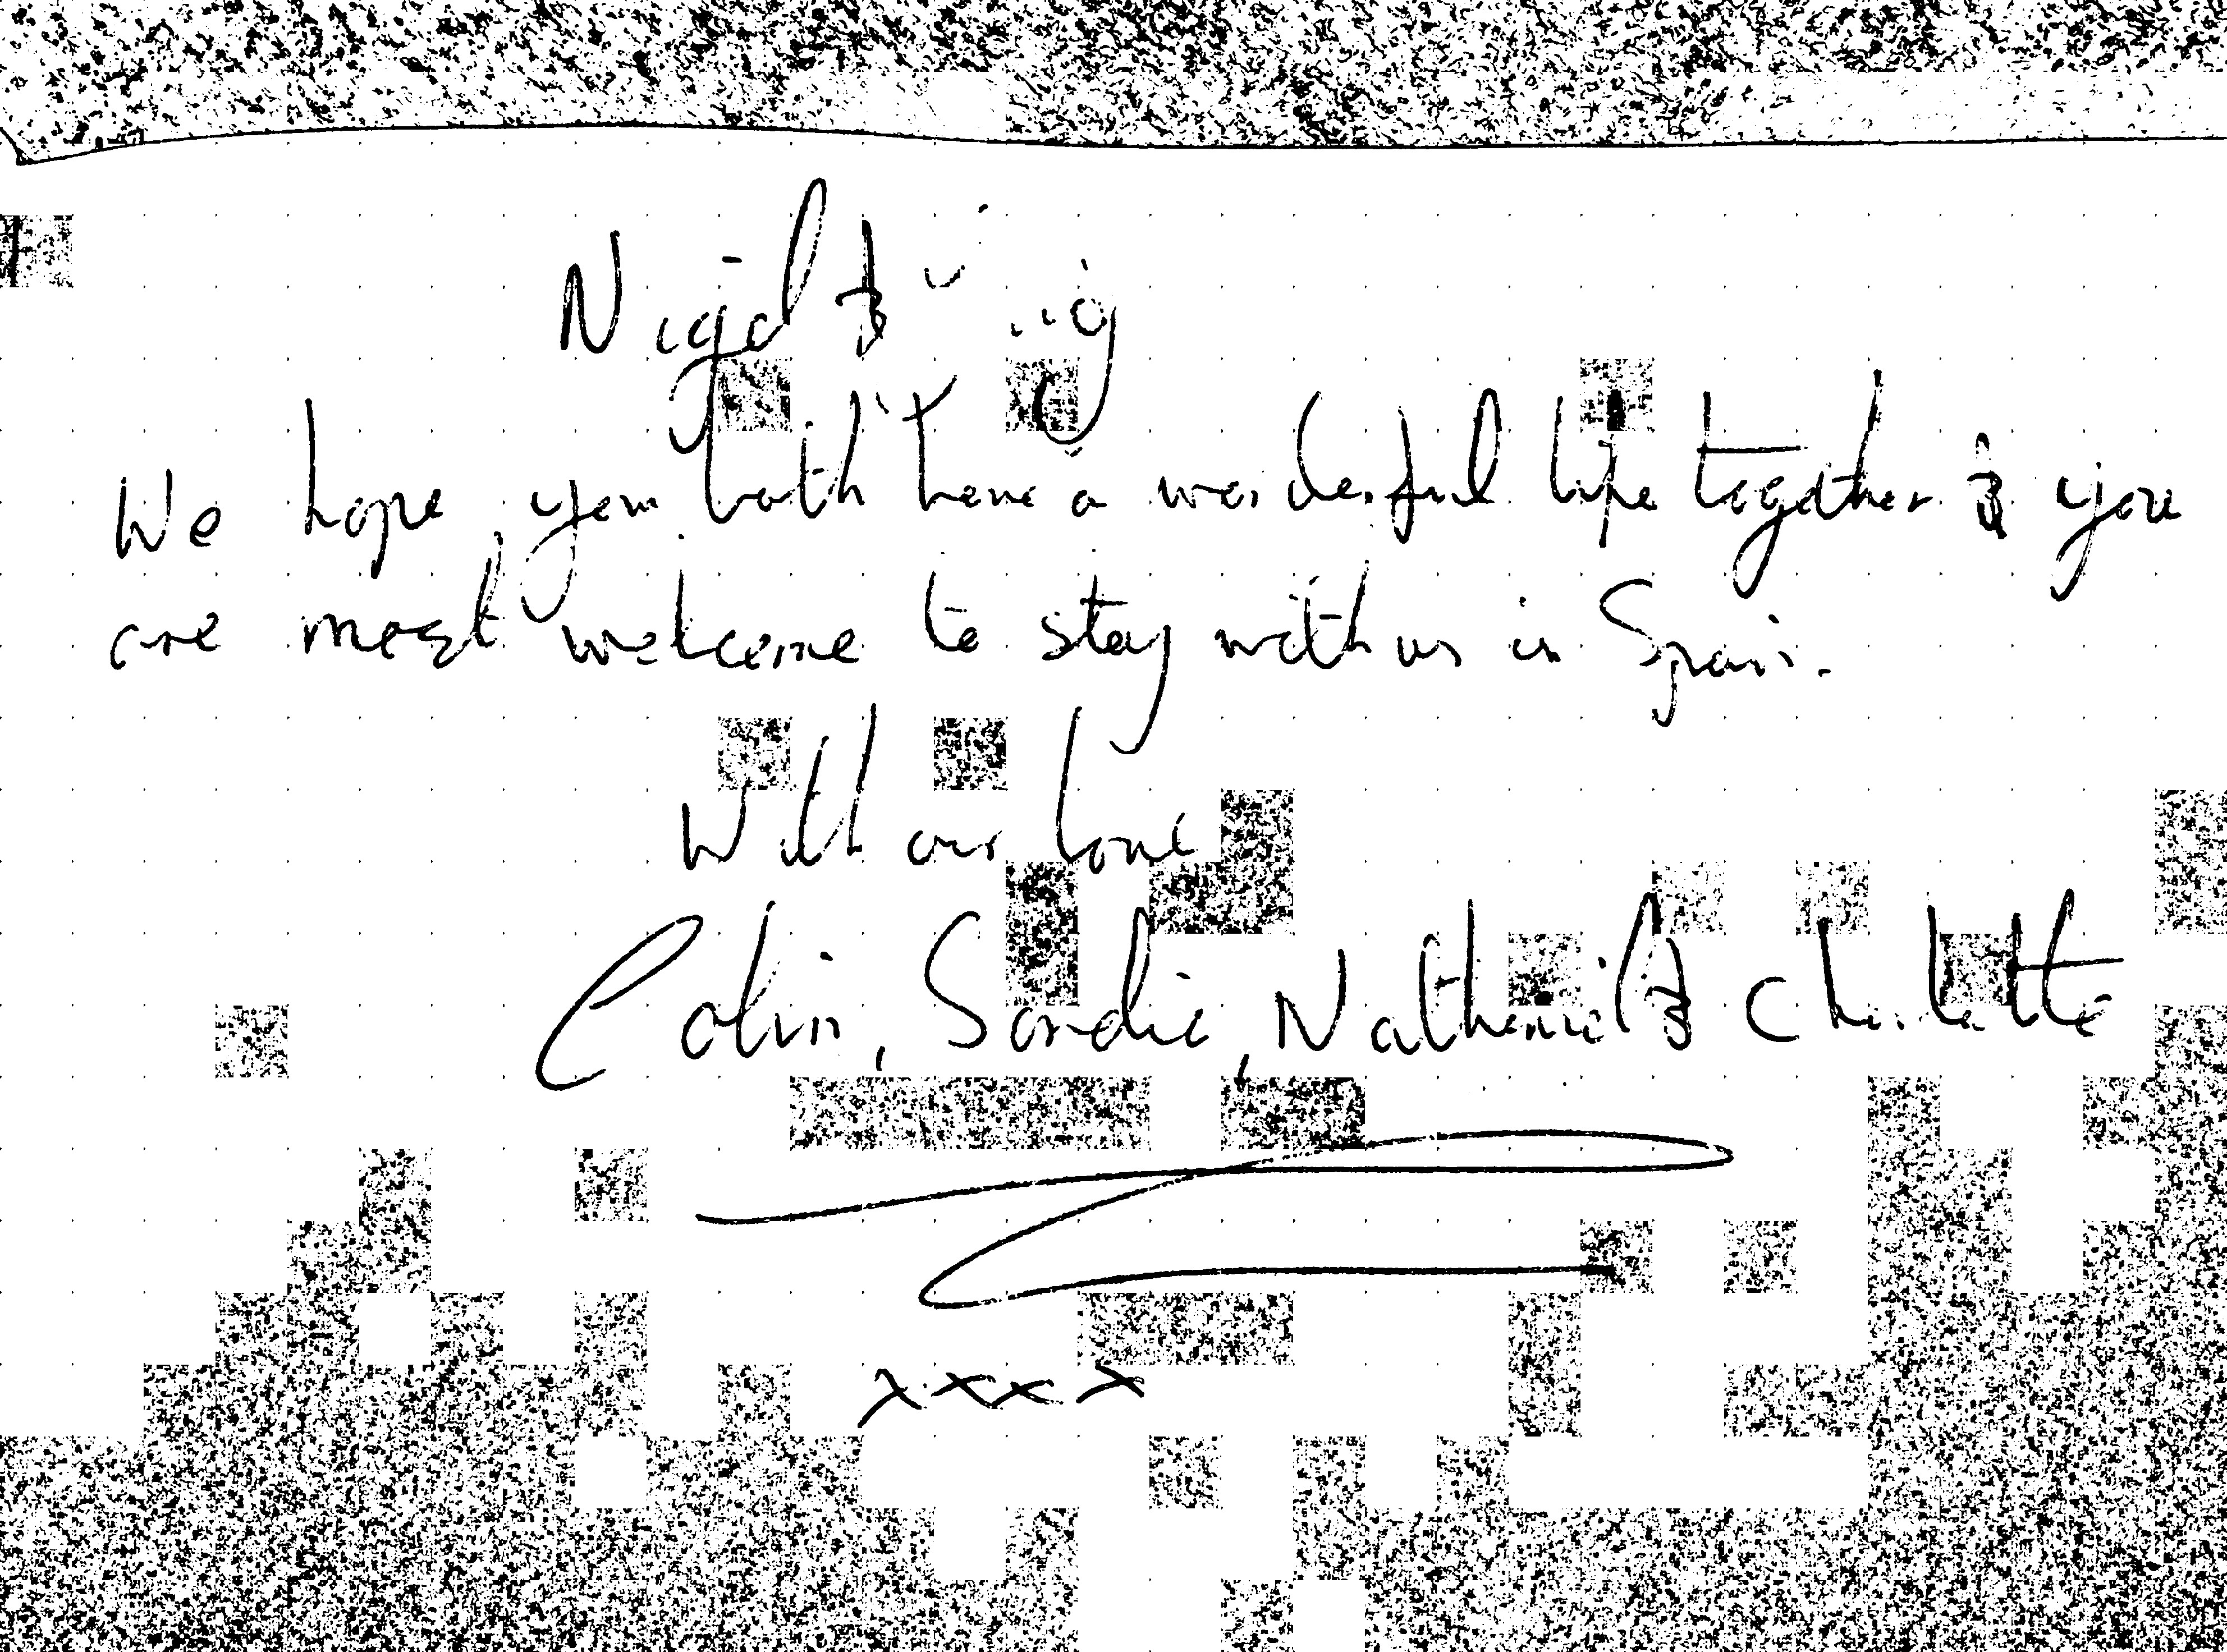 Nigel &
We hope you both have a wonderful life together & you
are most welcome to stay with us in Spain.
With our love
Colin, Sandie, Nathaniel & Charlotte
xxxx